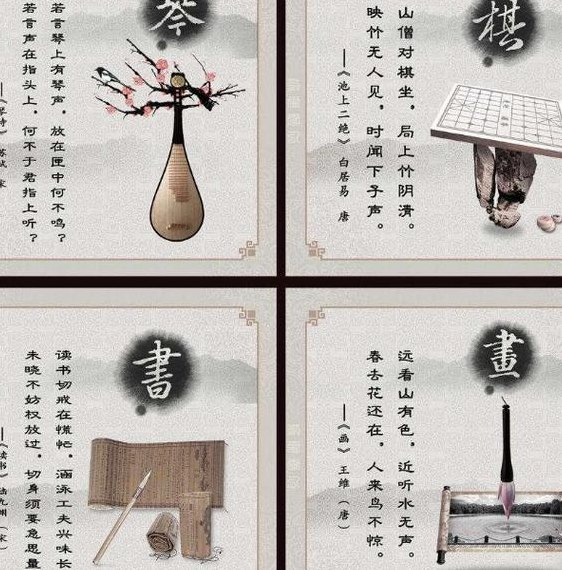 琴
若言琴上有琴声，放在匣中何不鸣？
若言声在指头上，何不于君指上听？
棋
山僧对棋坐，局上竹阴清。
映竹无人见，时闻下子声。
——《池上二绝》 白居易 唐
書
读书切戒在慌忙，涵泳工夫兴味长
未晓不妨权放过，切身须要急思量
畫
远看山有色，近听水无声。
春去花还在，人来鸟不惊。
——《画》 王维（唐）